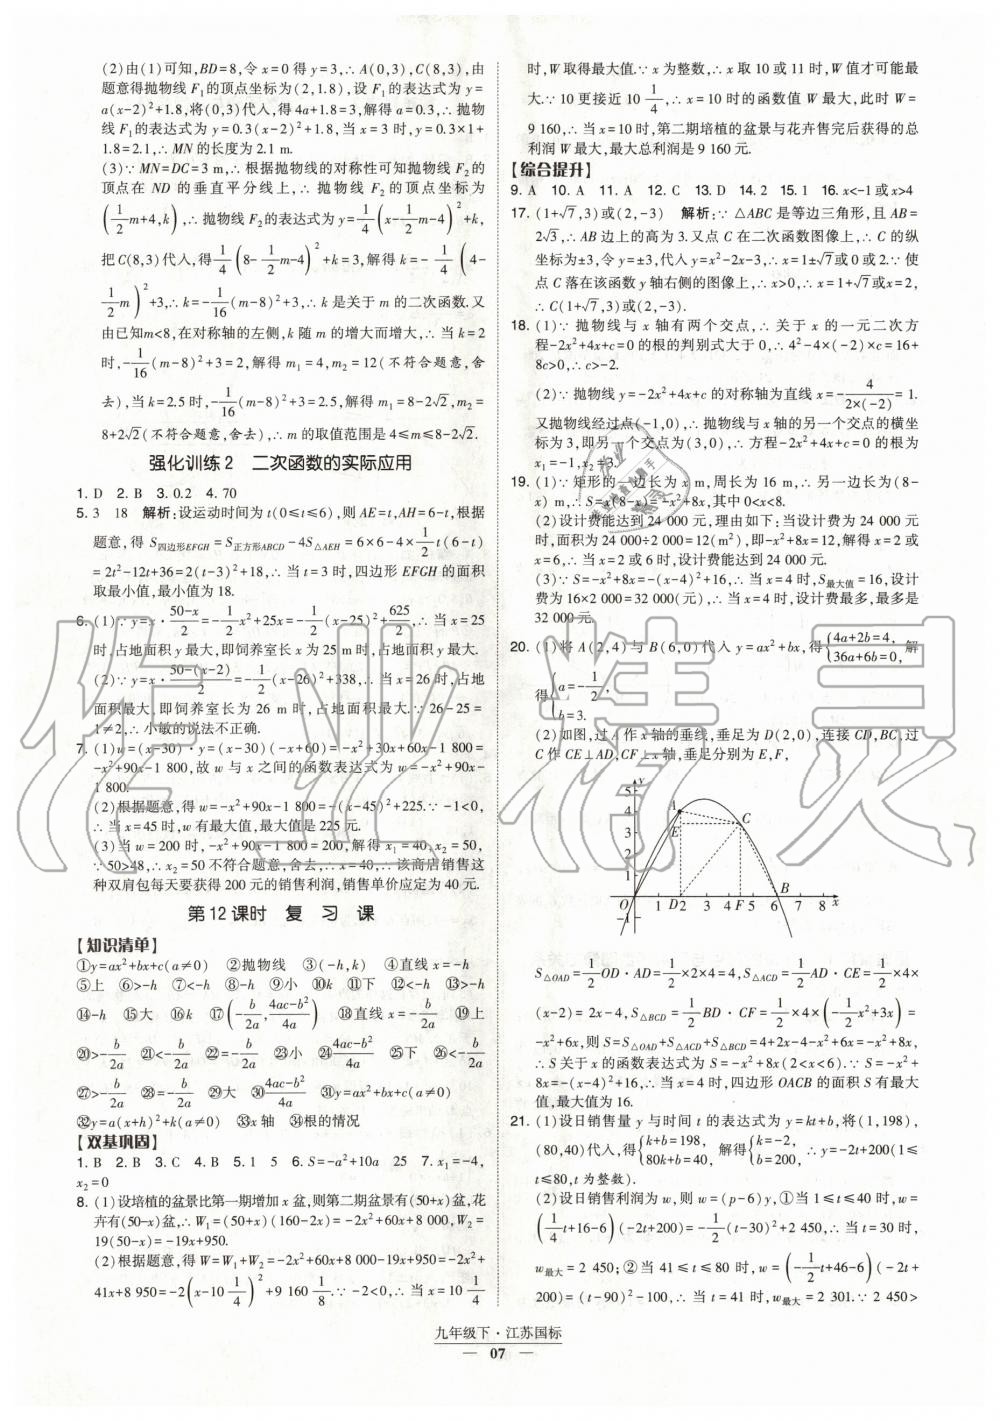 (2)由(1)可知,BD=8,令 x=0得 y=3,∴A(0,3),C(8,3),由
题意得抛物线 F₁的顶点坐标为(2,1.8),设 F₁的表达式为 y=
a(x-2)²+1.8,将(0,3)代入,得4a+1.8=3,解得 a=0.3,∴抛物
线 F₁的表达式为 y=0.3(x-2)²+1.8,当 x=3 时,y=0.3×1+
1.8=2.1,∴MN 的长度为 2.1 m.
(3)∵MN=DC=3 m,∴根据抛物线的对称性可知抛物线 F₂的
顶点在 ND 的垂直平分线上,∴抛物线 F₂的顶点坐标为
(1/2 m+4,k),∴抛物线 F₂的表达式为 y=1/4(x-1/2 m-4)²+k,
把 C(8,3)代入,得 1/4(8-1/2 m-4)²+k=3,解得 k=-1/4(4-
1/2 m)²+3,∴k=-1/16(m-8)²+3,∴k 是关于 m 的二次函数.又
由已知m<8,在对称轴的左侧,k 随 m 的增大而增大,∴当 k=2
时,-1/16(m-8)²+3=2,解得 m₁=4,m₂=12(不符合题意,舍
去),当 k=2.5 时,-1/16(m-8)²+3=2.5,解得 m₁=8-2√2,m₂=
8+2√2(不符合题意,舍去),∴m 的取值范围是 4≤m≤8-2√2.
强化训练2 二次函数的实际应用
1. D 2. B 3. 0.2 4. 70
5. 3 18 解析:设运动时间为 t(0≤t≤6),则 AE=t,AH=6-t,根据
题意,得 S四边形EFGH=S正方形ABCD-4S△AEH=6×6-4×1/2 t(6-t)
=2t²-12t+36=2(t-3)²+18,∴当 t=3 时,四边形 EFGH 的面积
取最小值,最小值为 18.
6. (1)∵y=x·(50-x)/2=-1/2 x²+25x=-1/2(x-25)²+625/2,∴当 x=25
时,占地面积 y 最大,即饲养室长 x 为 25 m 时,占地面积 y 最大.
(2)∵y=x·(50-(x-2))/2=-1/2(x-26)²+338,∴当 x=26 时,占地
面积最大,即饲养室长为 26 m 时,占地面积最大.∵26-25=
1≠2,∴小敏的说法不正确.
7. (1)w=(x-30)·y=(x-30)(-x+60)=-x²+30x+60x-1 800=
-x²+90x-1 800,故 w 与 x 之间的函数表达式为 w=-x²+90x-
1 800.
(2)根据题意,得 w=-x²+90x-1 800=-(x-45)²+225.∵-1<0,
∴当 x=45 时,w 有最大值,最大值是 225 元.
(3)当 w=200 时,-x²+90x-1 800=200,解得 x₁=40,x₂=50,
∵50>48,∴x₂=50 不符合题意,舍去,∴x=40,∴该商店销售这
种双肩包每天要获得 200 元的销售利润,销售单价应定为 40 元.
第12课时 复 习 课
【知识清单】
①y=ax²+bx+c(a≠0) ②抛物线 ③(-h,k) ④直线 x=-h
⑤上 ⑥>-h ⑦<-h ⑧-h ⑨小 ⑩k ⑪下 ⑫<-h ⑬>-h
⑭-h ⑮大 ⑯k ⑰(-b/2a,(4ac-b²)/4a) ⑱直线 x=-b/2a ⑲上
⑳>-b/2a ㉑<-b/2a ㉒=-b/2a ㉓小 ㉔(4ac-b²)/4a ㉕下 ㉖<-b/2a
㉗>-b/2a ㉘=-b/2a ㉙大 ㉚(4ac-b²)/4a ㉛y=ax²+bx+c(a≠0)
㉜y=a(x+h)²+k(a≠0) ㉝x 轴 ㉞根的情况
【双基巩固】
1. B 2. B 3. C 4. B 5. 1 5 6. S=-a²+10a 25 7. x₁=-4,
x₂=0
8. (1)设培植的盆景比第一期增加 x 盆,则第二期盆景有(50+x)盆,花
卉有(50-x)盆,∴W₁=(50+x)(160-2x)=-2x²+60x+8 000,W₂=
19(50-x)=-19x+950.
(2)根据题意,得 W=W₁+W₂=-2x²+60x+8 000-19x+950=-2x²+
41x+8 950=-2(x-10 1/4)²+9 160 1/8.∵-2<0,∴当 x=10 1/4
时,W 取得最大值.∵x 为整数,∴x 取 10 或 11 时,W 值才可能最
大.∵10 更接近 10 1/4,∴x=10 时的函数值 W 最大,此时 W=
9 160,∴当 x=10 时,第二期培植的盆景与花卉售完后获得的总
利润 W 最大,最大总利润是 9 160 元.
【综合提升】
9. A 10. A 11. A 12. C 13. D 14. 2 15. 1 16. x<-1或x>4
17. (1+√7,3)或(2,-3) 解析:∵△ABC 是等边三角形,且 AB=
2√3,∴AB 边上的高为 3.又点 C 在二次函数图像上,∴C 的纵
坐标为±3,令 y=±3,代入 y=x²-2x-3,∴x=1±√7或0或2.∵使
点 C 落在该函数 y 轴右侧的图像上,∴x>0,∴x=1+√7或x=2,
∴C(1+√7,3)或(2,-3).
18. (1)∵抛物线与 x 轴有两个交点,∴关于 x 的一元二次方
程-2x²+4x+c=0 的根的判别式大于 0,∴4²-4×(-2)×c=16+
8c>0,∴c>-2.
(2)∵抛物线 y=-2x²+4x+c 的对称轴为直线 x=-4/(2×(-2))=1.
又抛物线经过点(-1,0),∴抛物线与 x 轴的另一个交点的横
坐标为 3,即另一个交点为(3,0),∴方程-2x²+4x+c=0 的根为
x₁=-1,x₂=3.
19. (1)∵矩形的一边长为 x m,周长为 16 m,∴另一边长为(8-
x) m,∴S=x(8-x)=-x²+8x,其中 0<x<8.
(2)设计费能达到 24 000 元,理由如下:当设计费为 24 000 元
时,面积为 24 000÷2 000=12(m²),即-x²+8x=12,解得 x=2 或
x=6,∴当 x=2 或 6 时,设计费能达到 24 000 元.
(3)∵S=-x²+8x=-(x-4)²+16,∴当 x=4 时,S最大值=16,设计
费为 16×2 000=32 000(元),∴当 x=4 时,设计费最多,最多是
32 000 元.
20. (1)将 A(2,4)与 B(6,0)代入 y=ax²+bx,得{4a+2b=4, 36a+6b=0, 解
得{a=-1/2, b=3.
(2)如图,过 A 作 x 轴的垂线,垂足为 D(2,0),连接 CD,BC,过
C 作 CE⊥AD,CF⊥x 轴,垂足分别为 E,F,
y
5
4
3
2
1
-1
A
E
C
O 1 D2 3 4 F5 6 7 8 x
B
S△OAD=1/2 OD·AD=1/2×2×4=4,S△ACD=1/2 AD·CE=1/2×4×
(x-2)=2x-4,S△BCD=1/2 BD·CF=1/2×4×(-1/2 x²+3x)=
-x²+6x,则 S=S△OAD+S△ACD+S△BCD=4+2x-4-x²+6x=-x²+8x,
∴S 关于 x 的函数表达式为 S=-x²+8x(2<x<6).∵S=-x²+
8x=-(x-4)²+16,∴当 x=4 时,四边形 OACB 的面积 S 有最大
值,最大值为 16.
21. (1)设日销售量 y 与时间 t 的表达式为 y=kt+b,将(1,198),
(80,40)代入,得{k+b=198, 80k+b=40, 解得{k=-2, b=200. ∴y=-2t+200(1≤
t≤80,t 为整数).
(2)设日销售利润为 w,则 w=(p-6)y,①当 1≤t≤40 时,w=
(1/4 t+16-6)(-2t+200)=-1/2(t-30)²+2 450,∴当 t=30 时,
w最大=2 450;②当 41≤t≤80 时,w=(-1/2 t+46-6)(-2t+
200)=(t-90)²-100,∴当 t=41 时,w最大=2 301.∵2 450>
九年级下·江苏国标
07
作业精灵